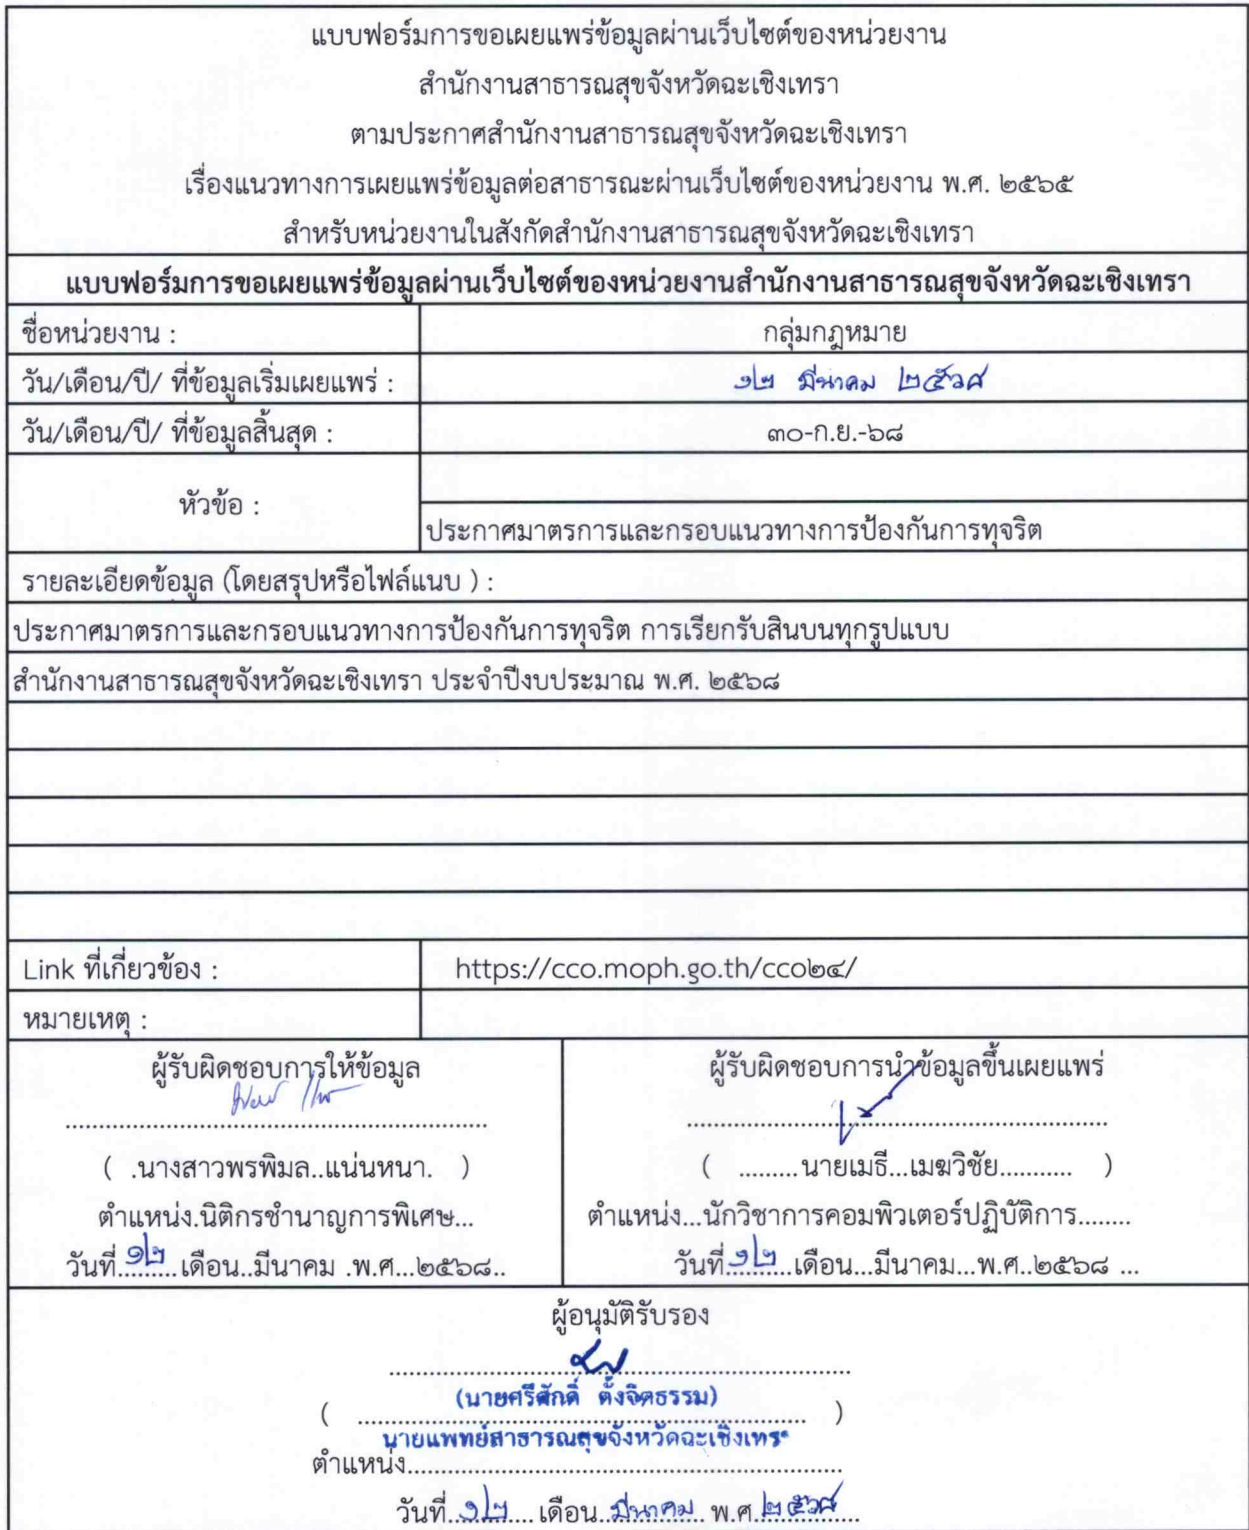 แบบฟอร์มการขอเผยแพร่ข้อมูลผ่านเว็บไซต์ของหน่วยงาน
สำนักงานสาธารณสุขจังหวัดฉะเชิงเทรา
ตามประกาศสำนักงานสาธารณสุขจังหวัดฉะเชิงเทรา
เรื่องแนวทางการเผยแพร่ข้อมูลต่อสาธารณะผ่านเว็บไซต์ของหน่วยงาน พ.ศ. ๒๕๖๕
สำหรับหน่วยงานในสังกัดสำนักงานสาธารณสุขจังหวัดฉะเชิงเทรา
แบบฟอร์มการขอเผยแพร่ข้อมูลผ่านเว็บไซต์ของหน่วยงานสำนักงานสาธารณสุขจังหวัดฉะเชิงเทรา
ชื่อหน่วยงาน : กลุ่มกฎหมาย
วัน/เดือน/ปี/ ที่ข้อมูลเริ่มเผยแพร่ : ๑๒ มีนาคม ๒๕๖๘
วัน/เดือน/ปี/ ที่ข้อมูลสิ้นสุด : ๓๐-ก.ย.-๖๘
หัวข้อ :
ประกาศมาตรการและกรอบแนวทางการป้องกันการทุจริต
รายละเอียดข้อมูล (โดยสรุปหรือไฟล์แนบ ) :
ประกาศมาตรการและกรอบแนวทางการป้องกันการทุจริต การเรียกรับสินบนทุกรูปแบบ
สำนักงานสาธารณสุขจังหวัดฉะเชิงเทรา ประจำปีงบประมาณ พ.ศ. ๒๕๖๘
Link ที่เกี่ยวข้อง : https://cco.moph.go.th/cco๒๔/
หมายเหตุ :
ผู้รับผิดชอบการให้ข้อมูล
( .นางสาวพรพิมล..แน่นหนา. )
ตำแหน่ง.นิติกรชำนาญการพิเศษ...
วันที่..๑๒..เดือน..มีนาคม .พ.ศ...๒๕๖๘..
ผู้รับผิดชอบการนำข้อมูลขึ้นเผยแพร่
( .........นายเมธี...เมฆวิชัย........... )
ตำแหน่ง...นักวิชาการคอมพิวเตอร์ปฏิบัติการ........
วันที่..๑๒..เดือน...มีนาคม...พ.ศ..๒๕๖๘ ...
ผู้อนุมัติรับรอง
(นายศรีศักดิ์ ตั้งจิตธรรม)
นายแพทย์สาธารณสุขจังหวัดฉะเชิงเทรา
ตำแหน่ง......................................................
วันที่..๑๒.... เดือน..มีนาคม.. พ.ศ.๒๕๖๘